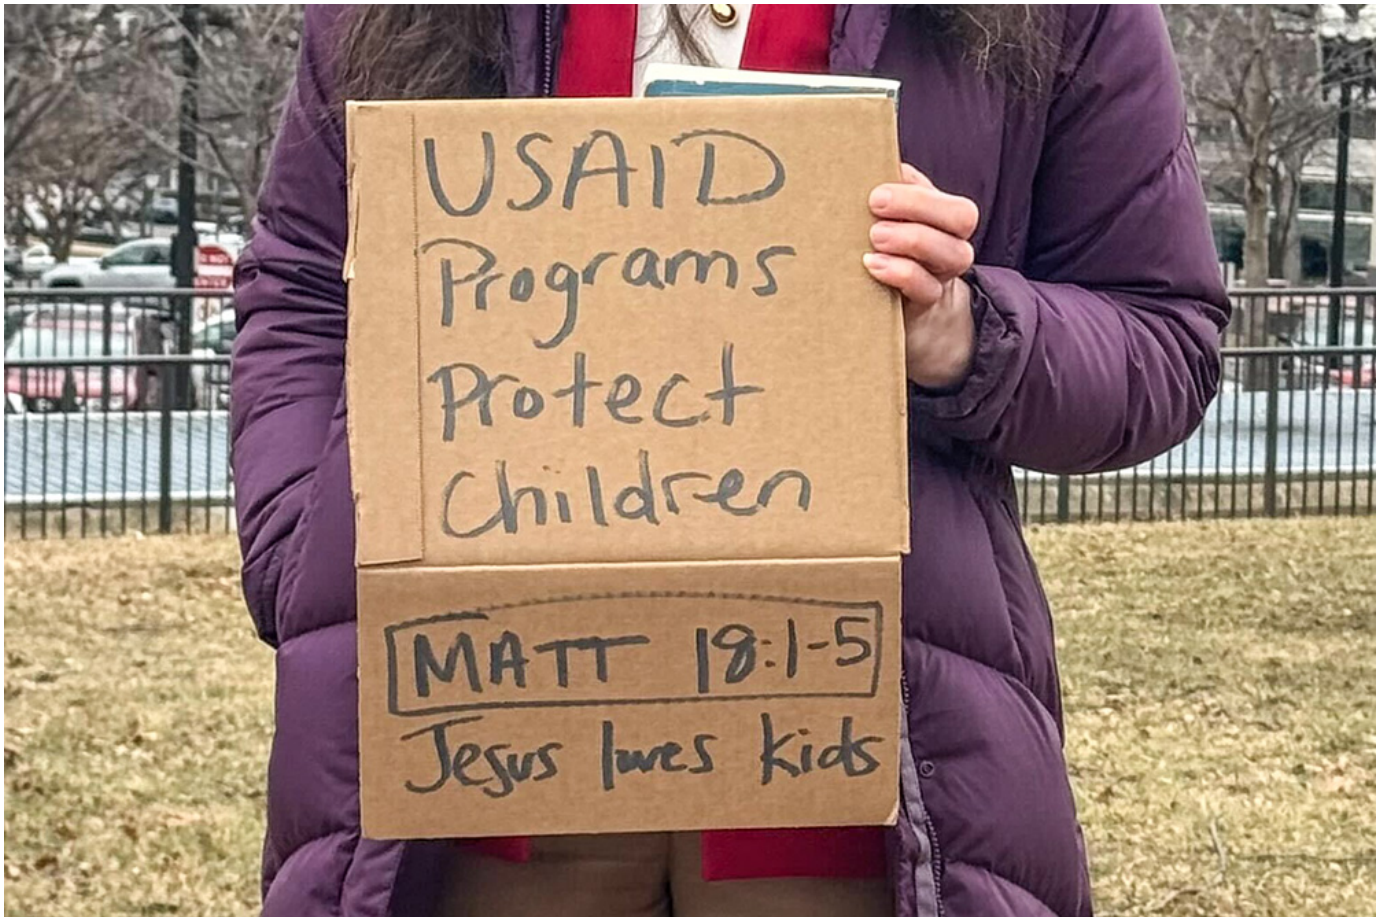 USAID
Programs
Protect
Children
MATT 18:1-5
Jesus loves kids